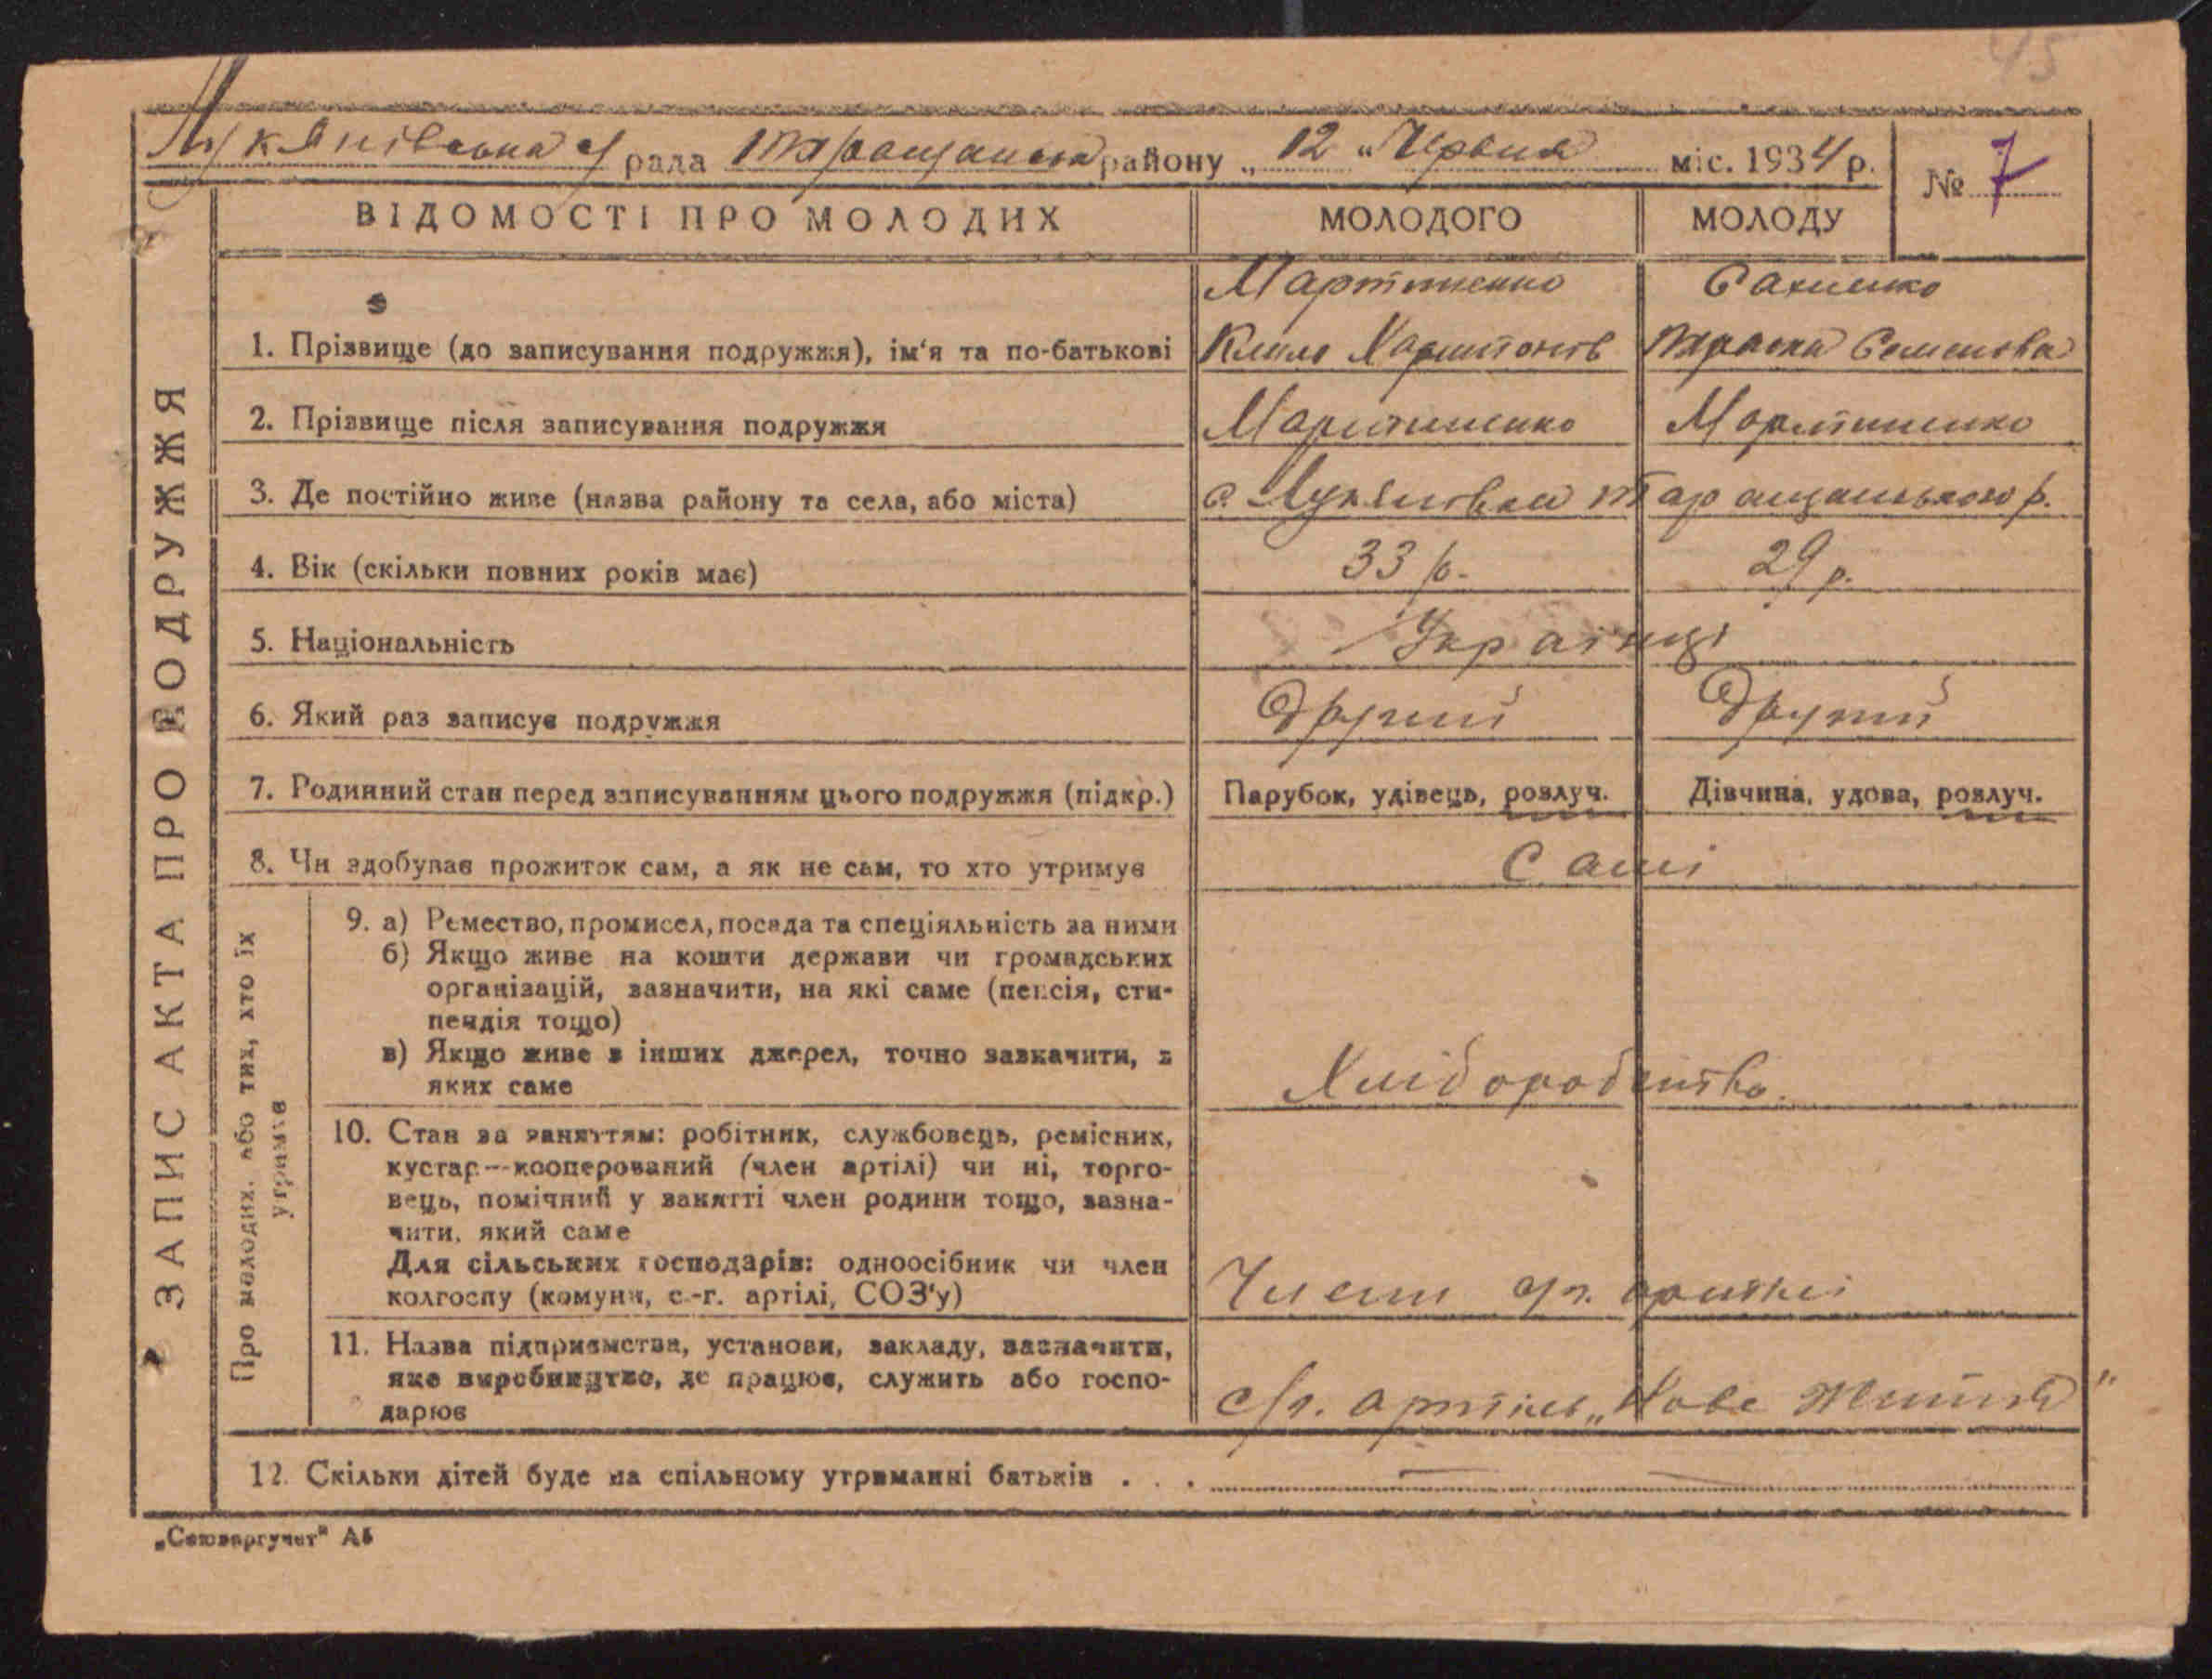 45
Лук'янівська с/рада Таращанськ району „12" Червня міс. 1934 р.
№ 7
ВІДОМОСТІ ПРО МОЛОДИХ
МОЛОДОГО
МОЛОДУ
ЗАПИС АКТА ПРО ПОДРУЖЖЯ
Мартиненко
1. Прізвище (до записування подружжя), ім'я та по-батькові
Харитонів
Параска Семенова
2. Прізвище після записування подружжя
Мартиненко
Мартиненко
3. Де постійно живе (назва району та села, або міста)
с. Лук'янівка Таращанського р.
4. Вік (скільки повних років має)
33 р.
29 р.
5. Національність
Українці
6. Який раз записує подружжя
Другий
Другий
7. Родинний стан перед записуванням цього подружжя (підкр.)
Парубок, удівець, розлуч.
Дівчина, удова, розлуч.
8. Чи здобуває прожиток сам, а як не сам, то хто утримує
Самі
Про молодих, або тих, хто їх
утримує
9. а) Ремество, промисел, посада та спеціяльність за ними
б) Якщо живе на кошти держави чи громадських
організацій, зазначити, на які саме (пенсія, сти-
пендія тощо)
в) Якщо живе з інших джерел, точно зазначити, з
яких саме
Хліборобство.
10. Стан за заняттям: робітник, службовець, ремісник,
кустар—кооперований (член артілі) чи ні, торго-
вець, помічний у занятті член родини тощо, зазна-
чити, який саме
Для сільських господарів: одноосібник чи член
колгоспу (комуни, с.-г. артілі, СОЗ'у)
Члени с/г. артілі
11. Назва підприємства, установи, закладу, зазначити,
яке виробництво, де працює, служить або госпо-
дарює
с/г. артіль „Нове Життя"
12. Скільки дітей буде на спільному утриманні батьків . . .
„Союзоргучет" А5